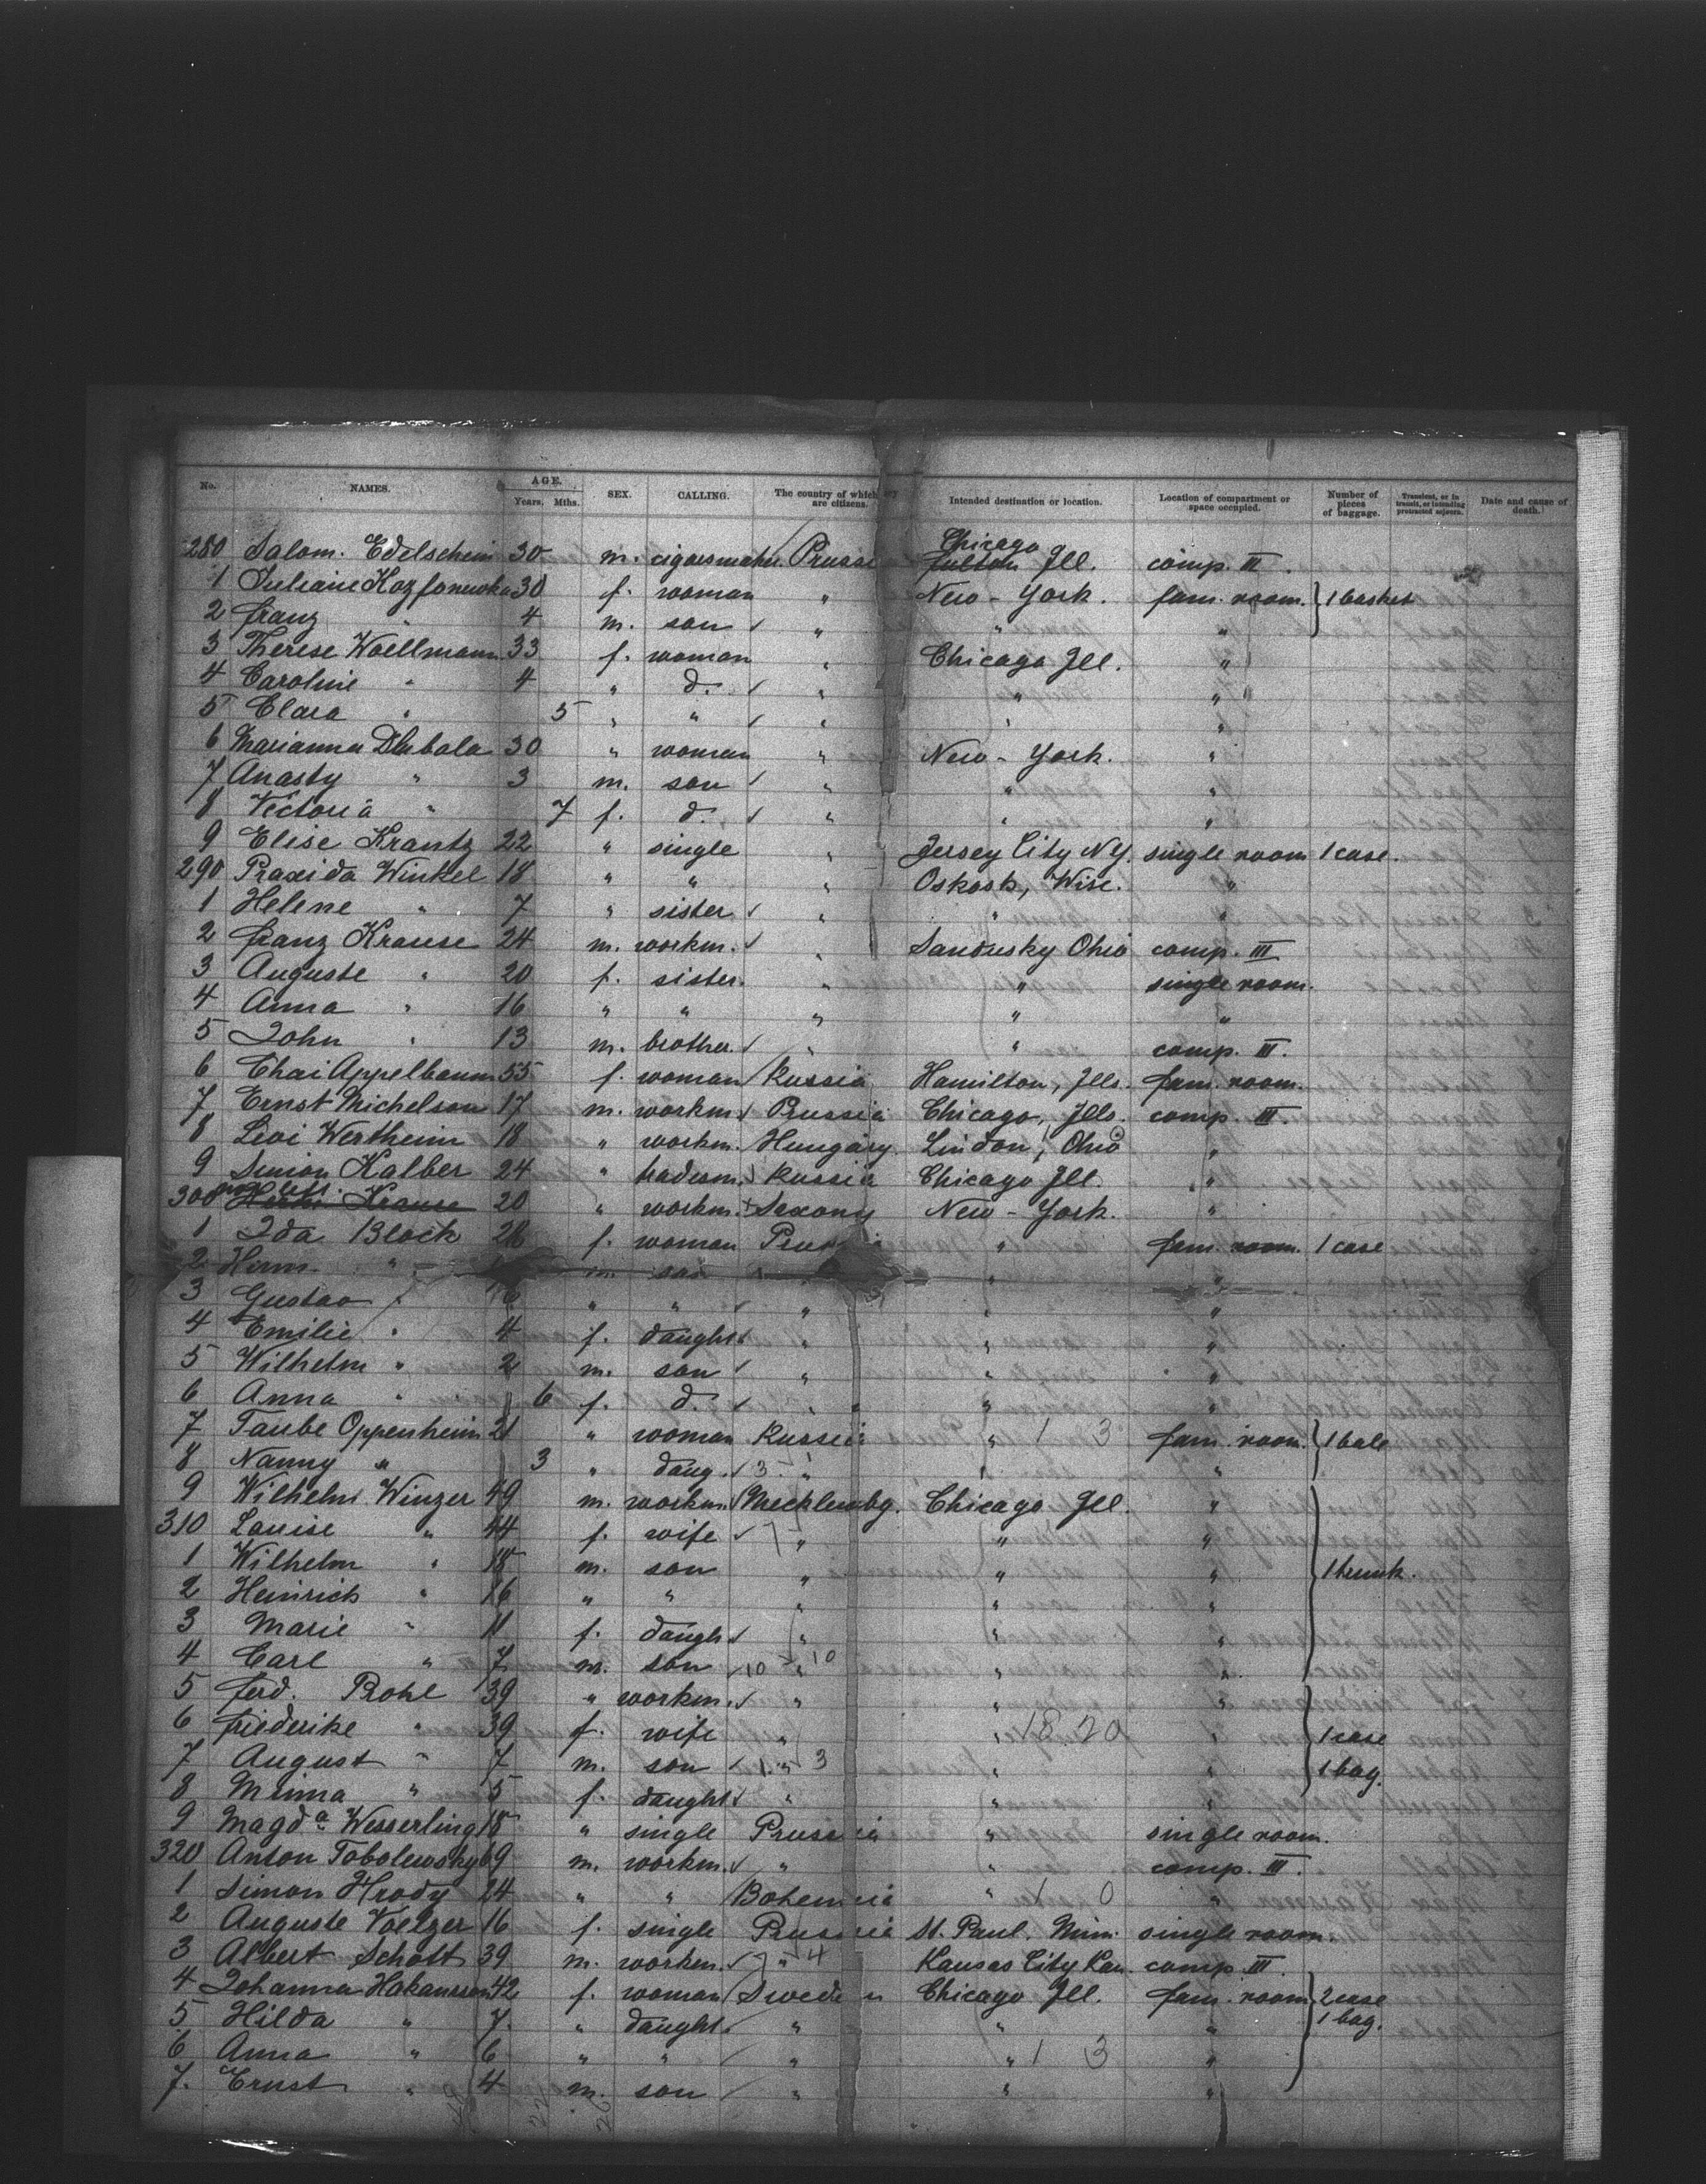 No. NAMES. AGE. Years. Mths. SEX. CALLING. The country of which they are citizens. Intended destination or location. Location of compartment or space occupied. Number of pieces of baggage. Transient, or in transit, or intending protracted sojourn. Date and cause of death.
Chicago
280 Salom. Edelschein 30 m. cigarsmaker Prussia Fulton Ill. comp. III.
1 Juliane 30 f. woman " New-York. fam. room. } 1 basket
2 Franz " 4 m. son " " "
3 Therese Woellmann 33 f. woman " Chicago Ill. "
4 Caroline " 4 " d. " " "
5 Clara " 5 " " " " "
6 Marianna Dlubala 30 " woman " New-York. "
7 Anasty " 3 m. son " " "
8 Victoria " 7 f. d. " " "
9 Elise Krantz 22 " single " Jersey City NY. single room 1 case.
290 Praxida Winkel 18 " " " Oskosk, Wisc. "
1 Helene " 7 " sister " " "
2 Franz Krause 24 m. workm. " Sandusky Ohio comp. III
3 Auguste " 20 f. sister. " " single room.
4 Anna " 16 " " " " "
5 John " 13 m. brother. " " comp. III.
6 Chai Appelbaum 55 f. woman Russia Hamilton, Ills. fam. room.
7 Ernst Michelson 17 m. workm. Prussia Chicago, Ills. comp. III.
8 Levi Wertheim 18 " workm. Hungary Lindon, Ohio "
9 Simon Kalber 24 " tradesm. Russia Chicago Ill. "
300 Krause 20 " workm. Saxony New-York. "
1 Ida Block 28 f. woman Prussia " fam. room. 1 case
2 Herm. " m. son " " "
3 Gustav " 6 " " " " "
4 Emilie " 4 f. daught. " " "
5 Wilhelm " 2 m. son " " "
6 Anna " 6 f. d. " " "
7 Taube Oppenheim 21 " woman Russia " 1 3 fam. room. } 1 bale
8 Nanny " 3 " daug. 3 " " "
9 Wilhelm Winzer 49 m. workm. Mecklenbg. Chicago Ill. "
310 Louise " 44 f. wife 7 " " "
1 Wilhelm " 18 m. son " " " 1 trunk.
2 Heinrich " 16 " " " " "
3 Marie " 11 f. daugh. " " "
4 Carl " 7 m. son 10 " 10 " "
5 Ferd. Prohl 39 " workm. " " "
6 Friederike " 39 f. wife " " 18 20 " 1 case
7 August " 7 m. son 1 " 3 " " 1 bag.
8 Minna " 5 f. daught. " " "
9 Magda Wesserling 18 " single Prussia " single room.
320 Anton Tobolewsky 69 m. workm. " " comp. III.
1 Simon Hrody 24 " " Bohemia " 1 0 "
2 Auguste Voelzer 16 f. single Prussia St. Paul. Minn. single room.
3 Albert Schott 39 m. workm. 7 " 4 Kansas City Kan. comp. III.
4 Johanna Hakansson 42 f. woman Sweden Chicago Ill. fam. room } 2 case
5 Hilda " 7. " daught. " " " 1 bag.
6 Anna " 6 " " " " 1 3 "
7. Ernst " 4 m. son " " "